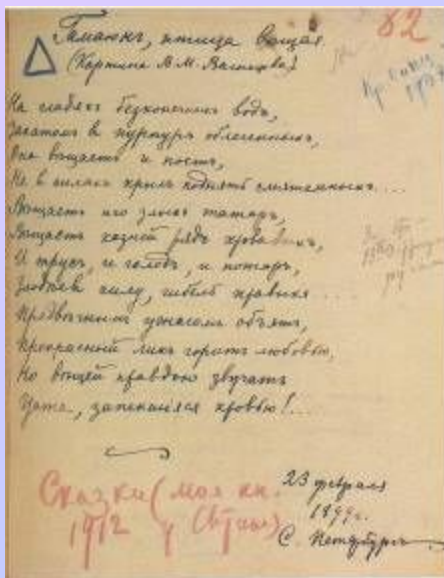 82
Гамаюнъ, птица вѣщая.
(Картина В. М. Васнецова)
На гладяхъ безконечныхъ водъ,
Закатомъ въ пурпуръ облеченныхъ,
Она вѣщаетъ и поетъ,
Не въ силахъ крылъ поднять смятенныхъ....
Вѣщаетъ иго злыхъ татаръ,
Вѣщаетъ казней рядъ кровавыхъ,
И трусъ, и голодъ, и пожаръ,
Злодѣевъ силу, гибель правыхъ ....
Предвѣчнымъ ужасомъ объятъ,
Прекрасный ликъ горитъ любовью,
Но вѣщей правдою звучатъ
Уста, запекшіяся кровью!...
Сказки (моя кн.
1912 у Сытина)
23 февраля
1899 г.
С. Петербургъ